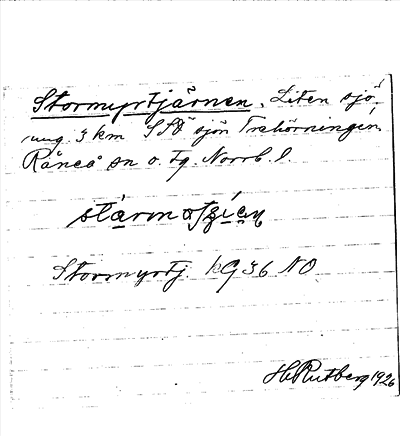 Stormyrtjärnen. Liten sjö,
ung. 3 km SSÖ sjön Trehörningen,
Råneå sn o. tg. Norrb. l.
Stormyrtj. kG 36 NO
H. Rutberg 1926